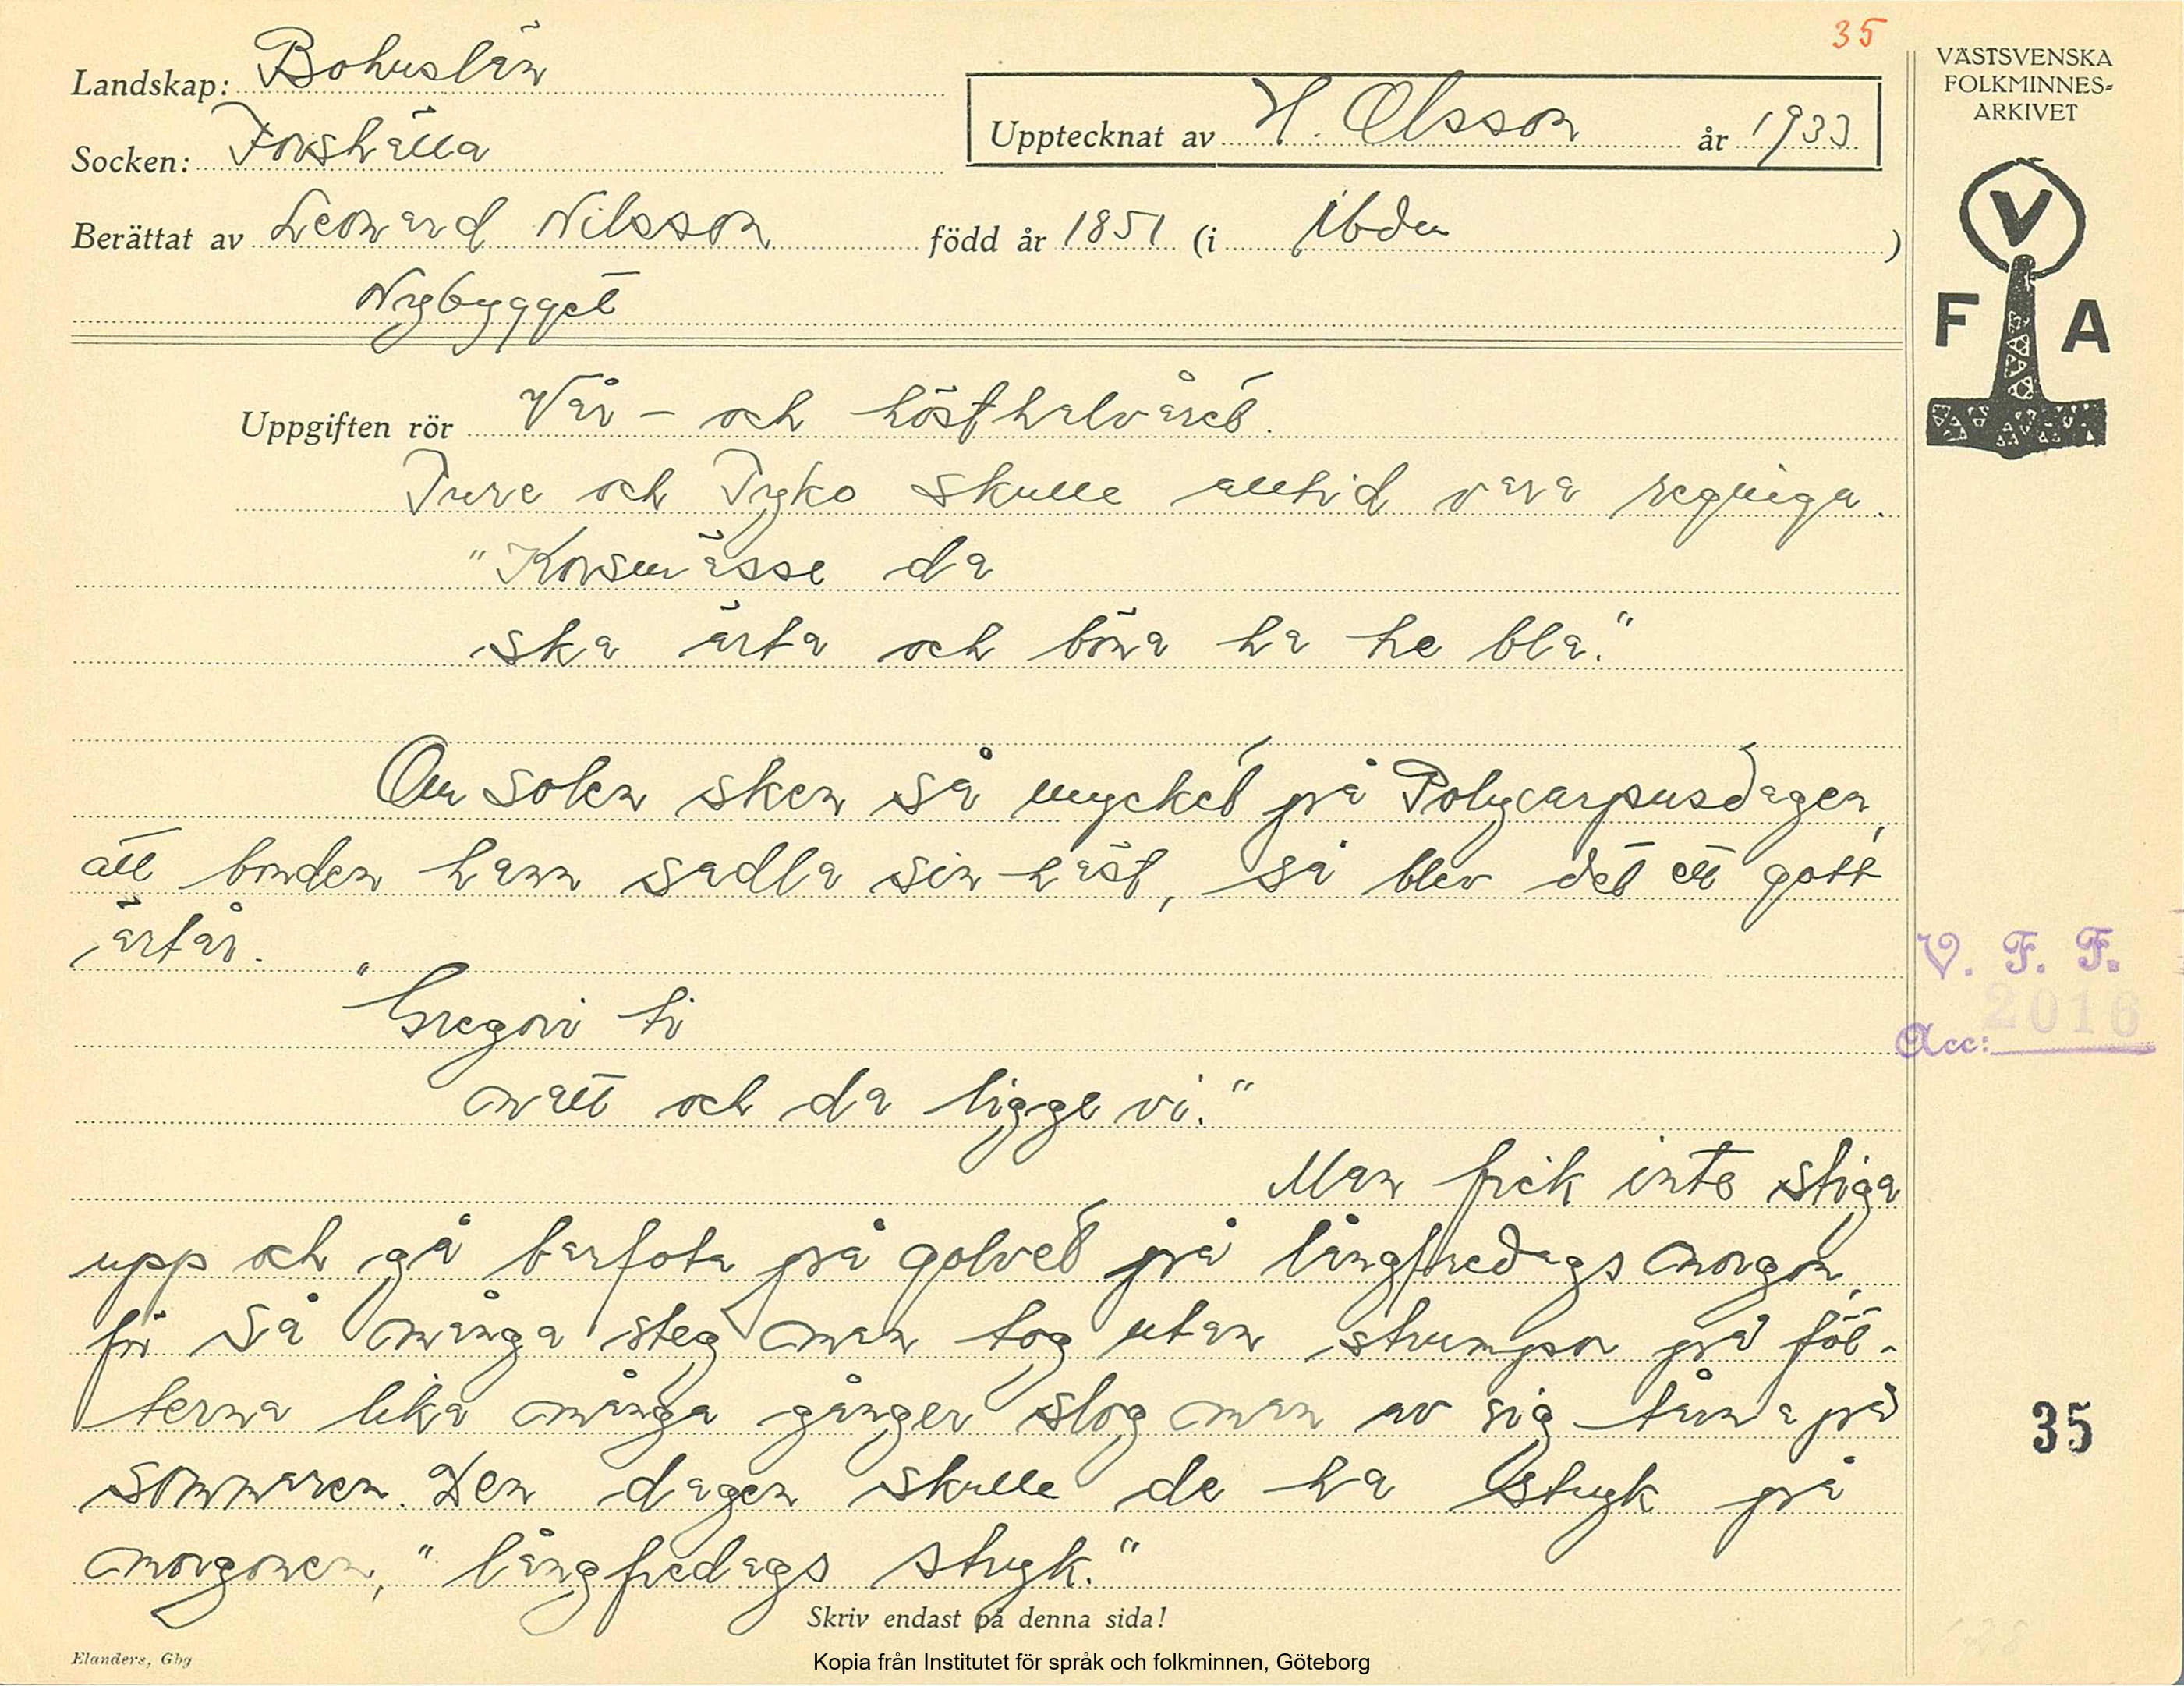 35
Landskap: Bohuslän
Socken: Forshälla
Upptecknat av H. Olsson år 1933
Berättat av Leonard Nilsson född år 1851 (i Ibdm )
Nybygget
VÄSTSVENSKA
FOLKMINNES-
ARKIVET
V
F A
Uppgiften rör Vår- och hösthalvåret.
Ture och Tyko skulle alltid vara regniga.
"Korsmässe da
ska ärta och böna ha he bla."
Om solen sken så mycket på Polycarpusdagen,
att bonden hann sadla sin häst, så blev det ett gott
ärtår.
"Gregori ti
natt och da ligge vi."
Man fick inte stiga
upp och gå barfota på golvet på långfredagsmorgon,
för så många steg man tog utan strumpor på föt-
terna lika många gånger slog man av sig tårna på
sommaren. Den dagen skulle de ha stryk på
morgonen, "långfredags stryk."
V. F. F.
2016
Acc:
35
Skriv endast på denna sida!
Elanders, Gbg
Kopia från Institutet för språk och folkminnen, Göteborg